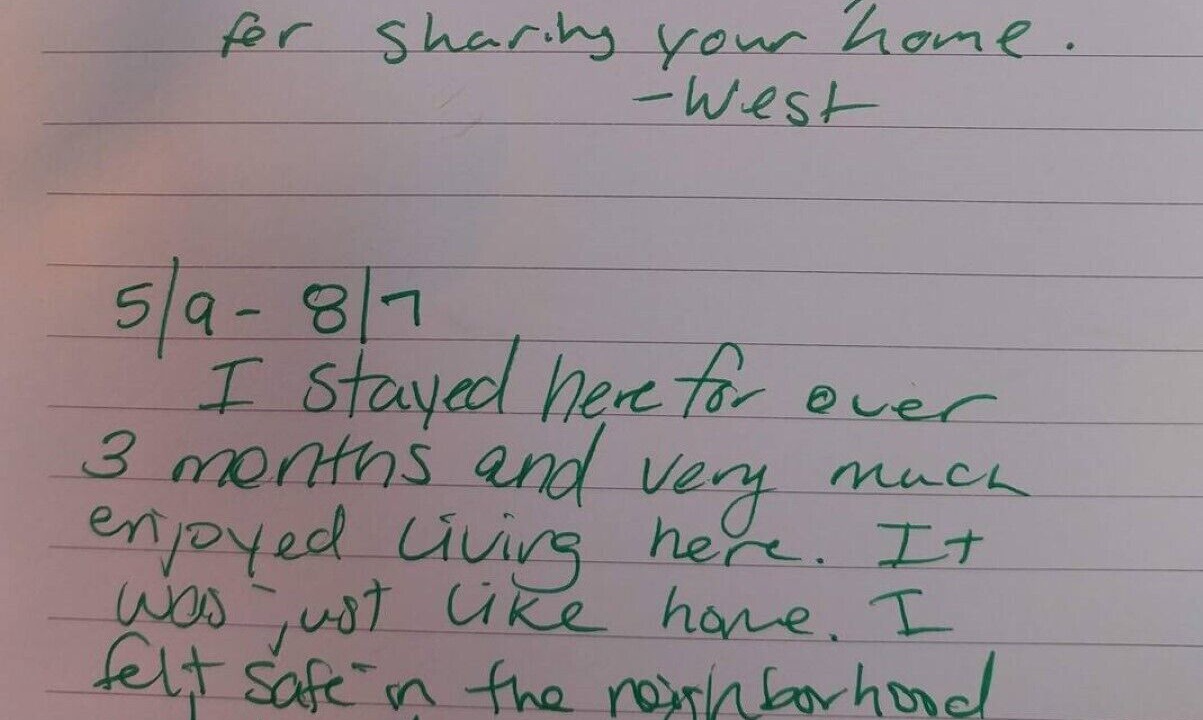 for sharing your home.
-West
5/9 - 8/7
I stayed here for over
3 months and very much
enjoyed living here. It
was just like home. I
felt safe in the neighborhood